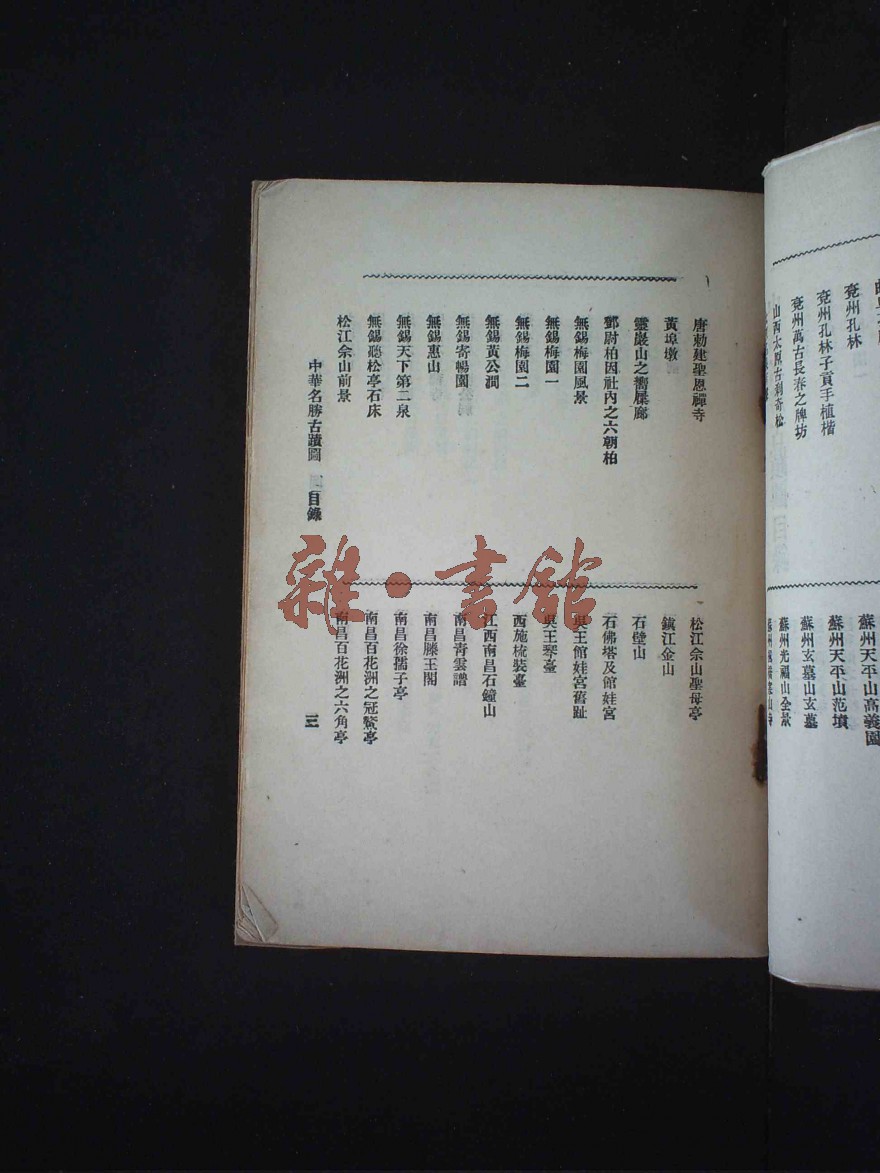 兗州孔林
兗州孔林子貢手植楷
兗州萬古長春之牌坊
山西太原古刹奇松
蘇州天平山高義園
蘇州天平山范墳
蘇州玄墓山玄墓
蘇州光福山全景
唐勅建聖恩禪寺
黃埠墩
靈巖山之響屧廊
鄧尉柏因社內之六朝柏
無錫梅園風景
無錫梅園一
無錫梅園二
無錫黃公澗
無錫寄暢園
無錫惠山
無錫天下第二泉
無錫聽松亭石床
松江佘山前景
松江佘山聖母亭
鎮江金山
石壁山
石佛塔及館娃宮
吳王館娃宮舊趾
吳王琴臺
西施梳裝臺
江西南昌石鐘山
南昌靑雲譜
南昌滕王閣
南昌徐孺子亭
南昌百花洲之冠鰲亭
南昌百花洲之六角亭
中華名勝古蹟圖 目錄 三
雜·書館